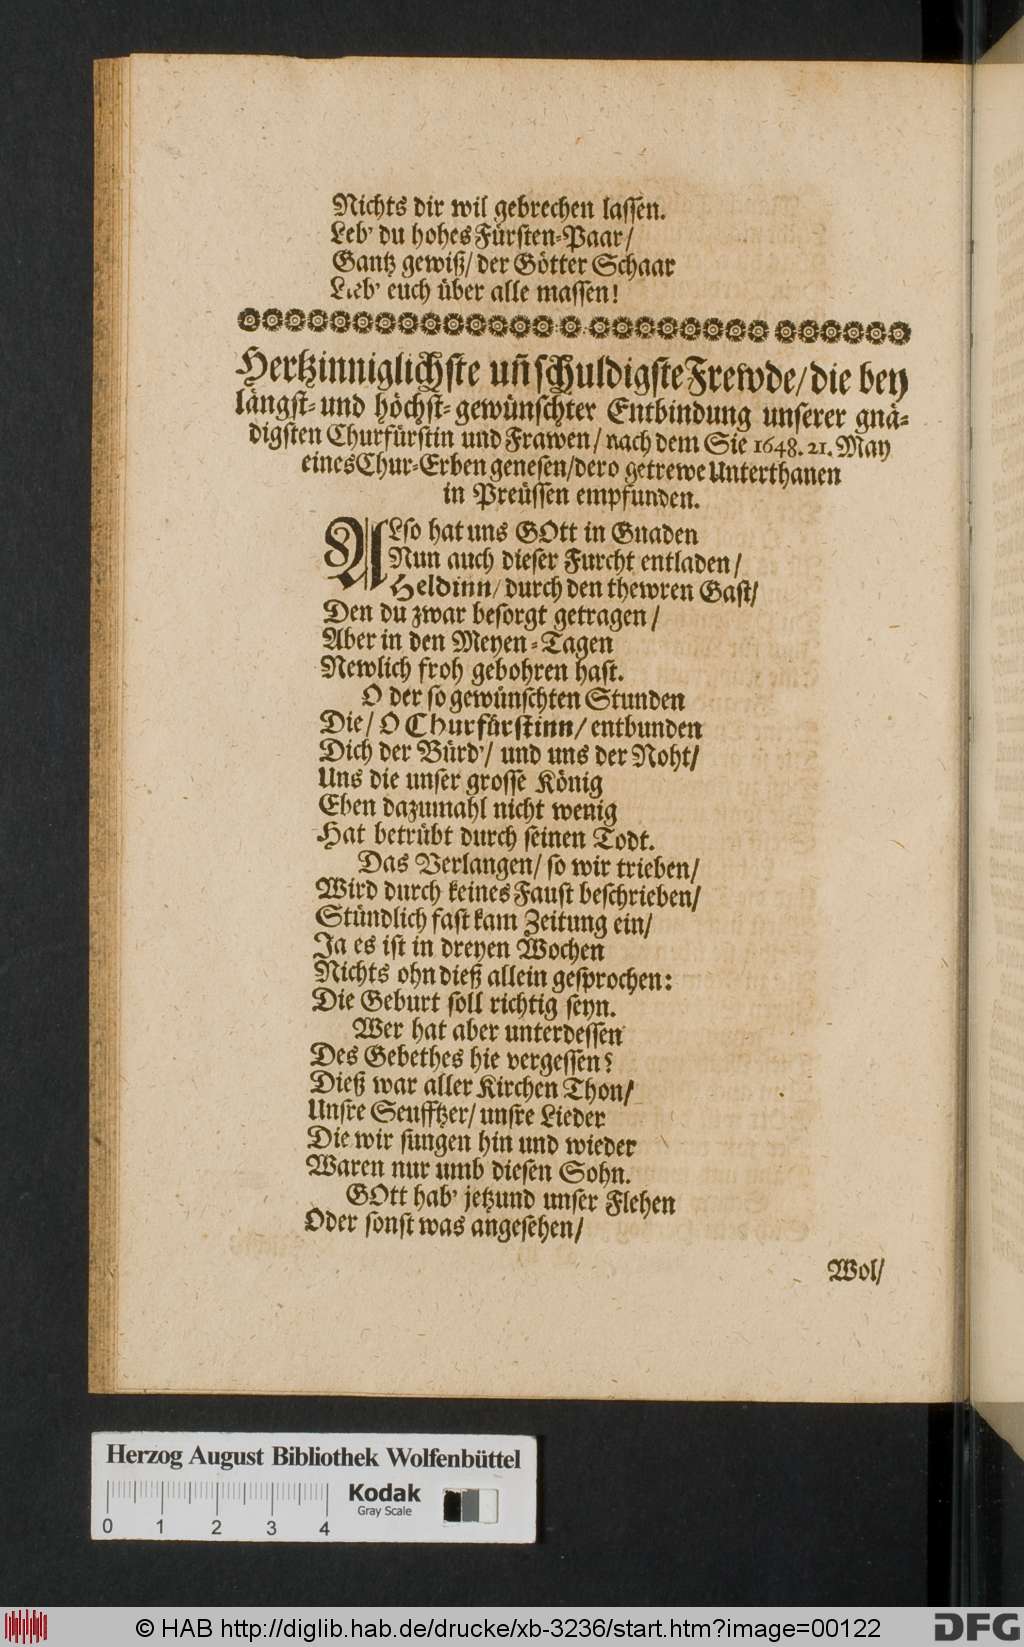 Nichts dir wil gebrechen lassen.
Leb' du hohes Fürsten-Paar/
Gantz gewiß/ der Götter Schaar
Lieb' euch über alle massen!
Hertzinniglichste uñ schuldigste Frewde/ die bey
längst- und höchst- gewünschter Entbindung unserer gnä-
digsten Churfürstin und Frawen/ nach dem Sie 1648. 21. May
eines Chur-Erben genesen/ dero getrewe Unterthanen
in Preüssen empfunden.
ALso hat uns GOtt in Gnaden
Nun auch dieser Furcht entladen/
Heldinn/ durch den thewren Gast/
Den du zwar besorgt getragen/
Aber in den Meyen-Tagen
Newlich froh gebohren hast.
O der so gewünschten Stunden
Die/ O Churfürstinn/ entbunden
Dich der Bürd'/ und uns der Noht/
Uns die unser grosse König
Eben dazumahl nicht wenig
Hat betrübt durch seinen Todt.
Das Verlangen/ so wir trieben/
Wird durch keines Faust beschrieben/
Stündlich fast kam Zeitung ein/
Ja es ist in dreyen Wochen
Nichts ohn dieß allein gesprochen:
Die Geburt soll richtig seyn.
Wer hat aber unterdessen
Des Gebethes hie vergessen?
Dieß war aller Kirchen Thon/
Unsre Seufftzer/ unsre Lieder
Die wir sungen hin und wieder
Waren nur umb diesen Sohn.
GOtt hab' jetzund unser Flehen
Oder sonst was angesehen/
Wol/
Herzog August Bibliothek Wolfenbüttel
Kodak
Gray Scale
0 1 2 3 4
© HAB http://diglib.hab.de/drucke/xb-3236/start.htm?image=00122
DFG